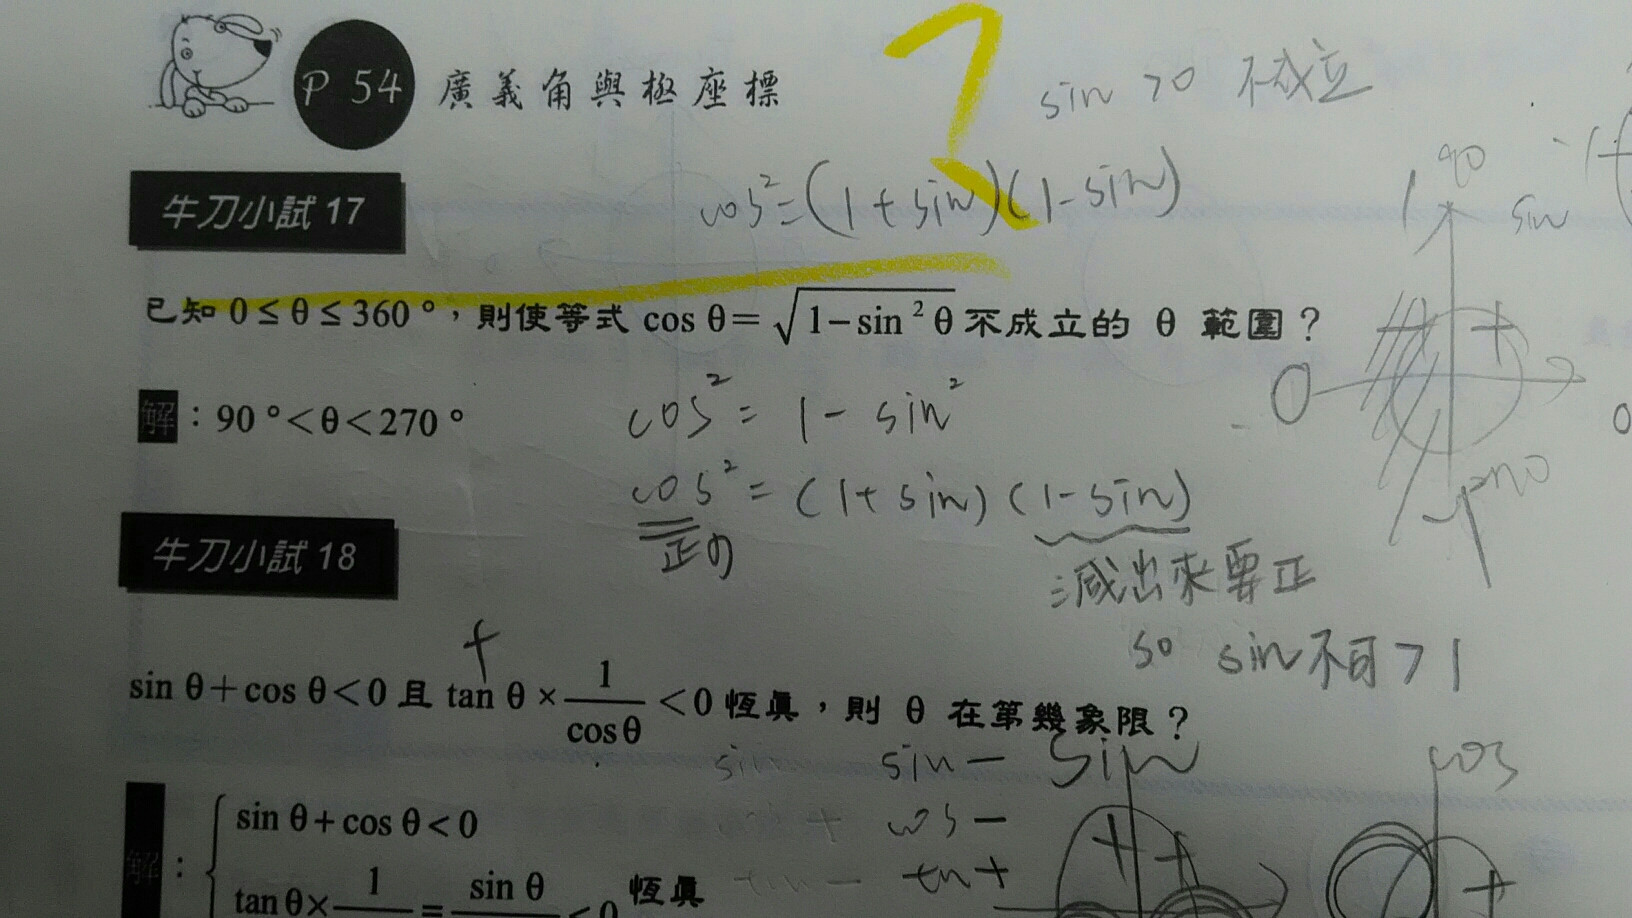 P 54 廣義角與極座標
sin >0 不成立
牛刀小試 17
cos²=(1+sin)(1-sin)
90
sin
已知 0≤θ≤360°,則使等式 cos θ=√(1-sin²θ) 不成立的 θ 範圍?
解:90°<θ<270°
cos²= 1- sin²
0
cos²= (1+sin)(1-sin)
正の
減出來要正
so sin不可>1
牛刀小試 18
+
sin θ+cos θ<0 且 tan θ × 1/cosθ <0 恆真,則 θ 在第幾象限?
sin- sin cos
cos-
tan+
解:
sin θ+cos θ<0
tan θ× 1 = sin θ <0 恆真